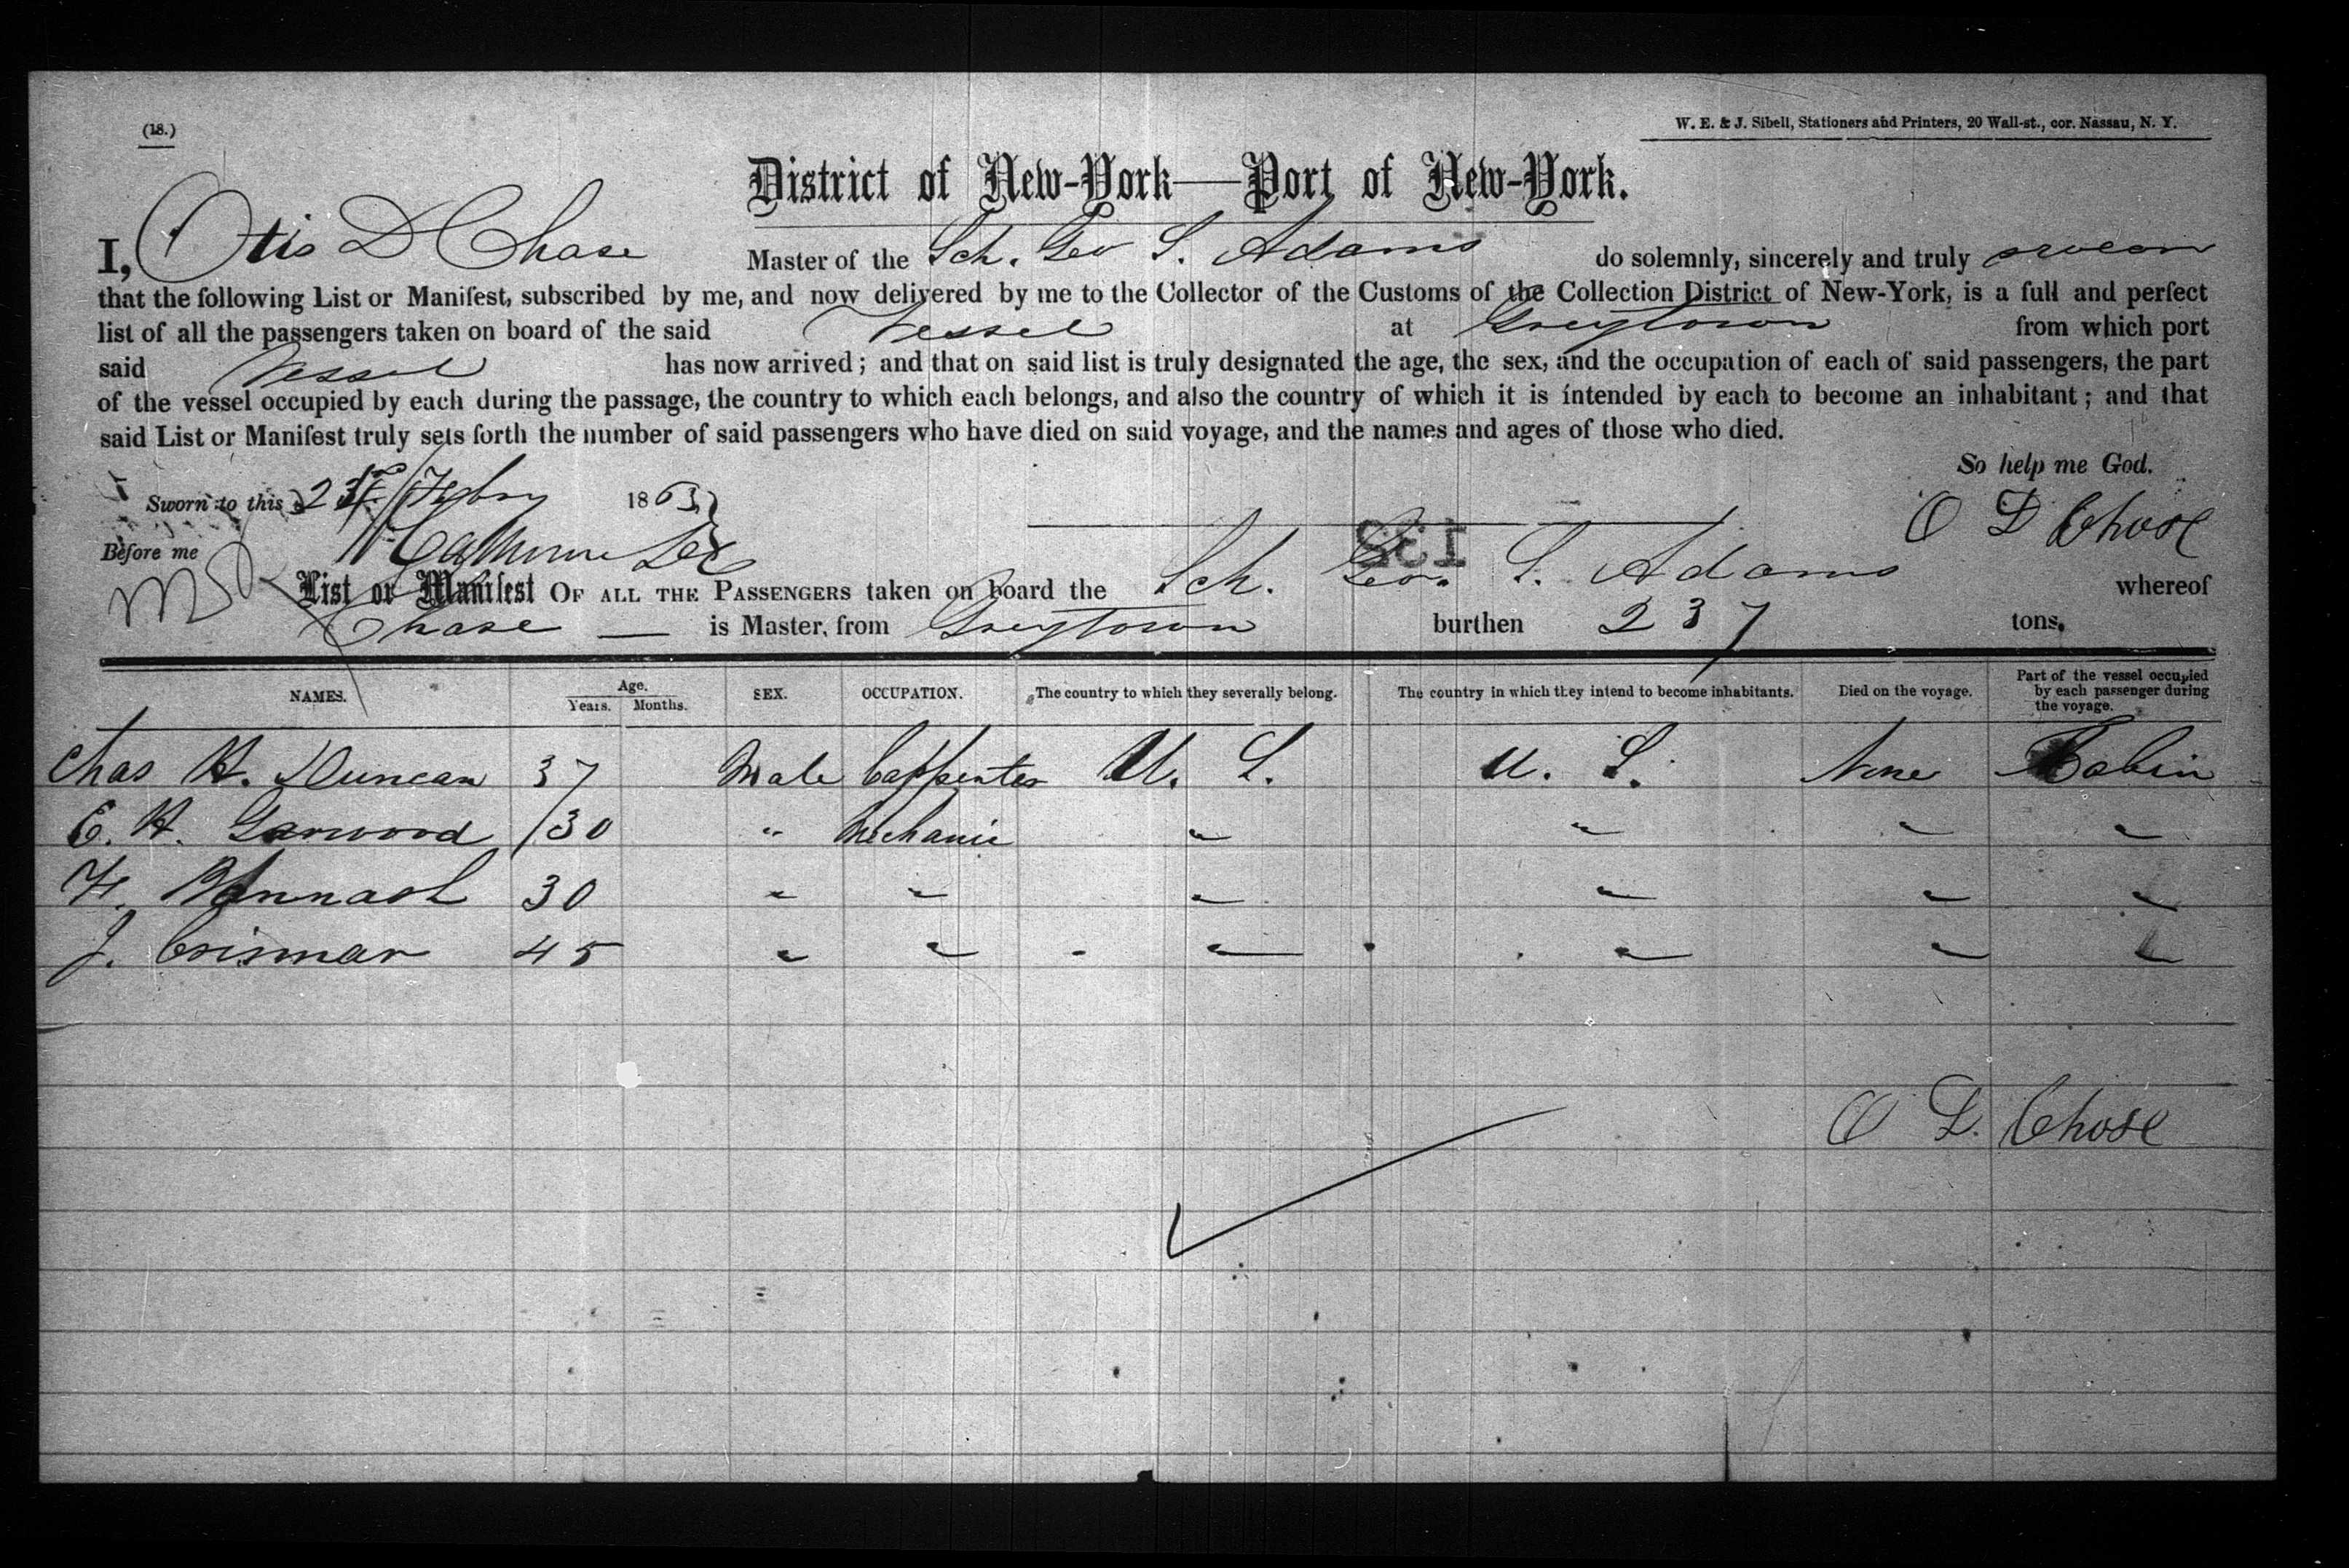 (18.)
W. E. & J. Sibell, Stationers and Printers, 20 Wall-st., cor. Nassau, N. Y.
District of New-York—Port of New-York.
I, Otis D Chase Master of the Sch. Geo S. Adams do solemnly, sincerely and truly swear
that the following List or Manifest, subscribed by me, and now delivered by me to the Collector of the Customs of the Collection District of New-York, is a full and perfect
list of all the passengers taken on board of the said Vessel at Greytown from which port
said Vessel has now arrived; and that on said list is truly designated the age, the sex, and the occupation of each of said passengers, the part
of the vessel occupied by each during the passage, the country to which each belongs, and also the country of which it is intended by each to become an inhabitant; and that
said List or Manifest truly sets forth the number of said passengers who have died on said voyage, and the names and ages of those who died.
So help me God.
Sworn to this 23 Febry 1863
O D Chase
Before me
138
List or Manifest OF ALL THE PASSENGERS taken on board the Sch. Geo. S. Adams whereof
Chase — is Master, from Greytown burthen 237 tons.
NAMES. Age. Years. Months. SEX. OCCUPATION. The country to which they severally belong. The country in which they intend to become inhabitants. Died on the voyage. Part of the vessel occupied by each passenger during the voyage.
Chas H. Duncan 37 Male Carpenter U. S. U. S. None Cabin
E. H. Garwood 30 " Mechanic " " " "
H. 30 " " " " " "
J. Crisman 45 " " " " " "
O D. Chase